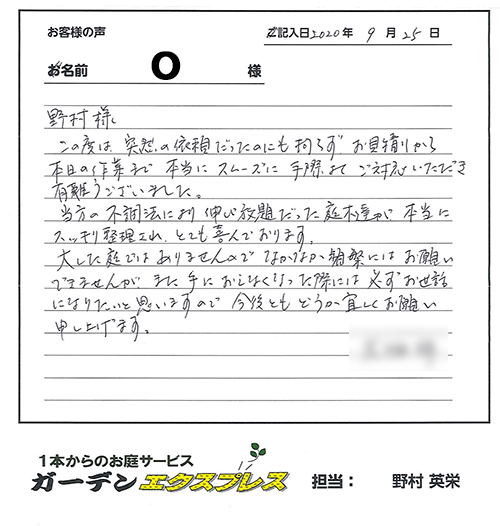 お客様の声
ご記入日2020年 9 月 25 日
お名前 O 様
野村様
この度は、突然の依頼だったのにも拘らず お見積りから
本日の作業まで 本当に スムーズに 手際よく ご対応いただき
有難うございました。
当方の不調法により 伸び放題だった庭木達が 本当に
スッキリ整理され、とても喜んでおります。
大した庭ではありませんので なかなか頻繁にはお願い
できませんが、また 手におえなくなった際には 必ずお世話
になりたいと思いますので 今後とも どうか宜しくお願い
申し上げます。
1本からのお庭サービス
ガーデンエクスプレス 担当： 野村 英栄